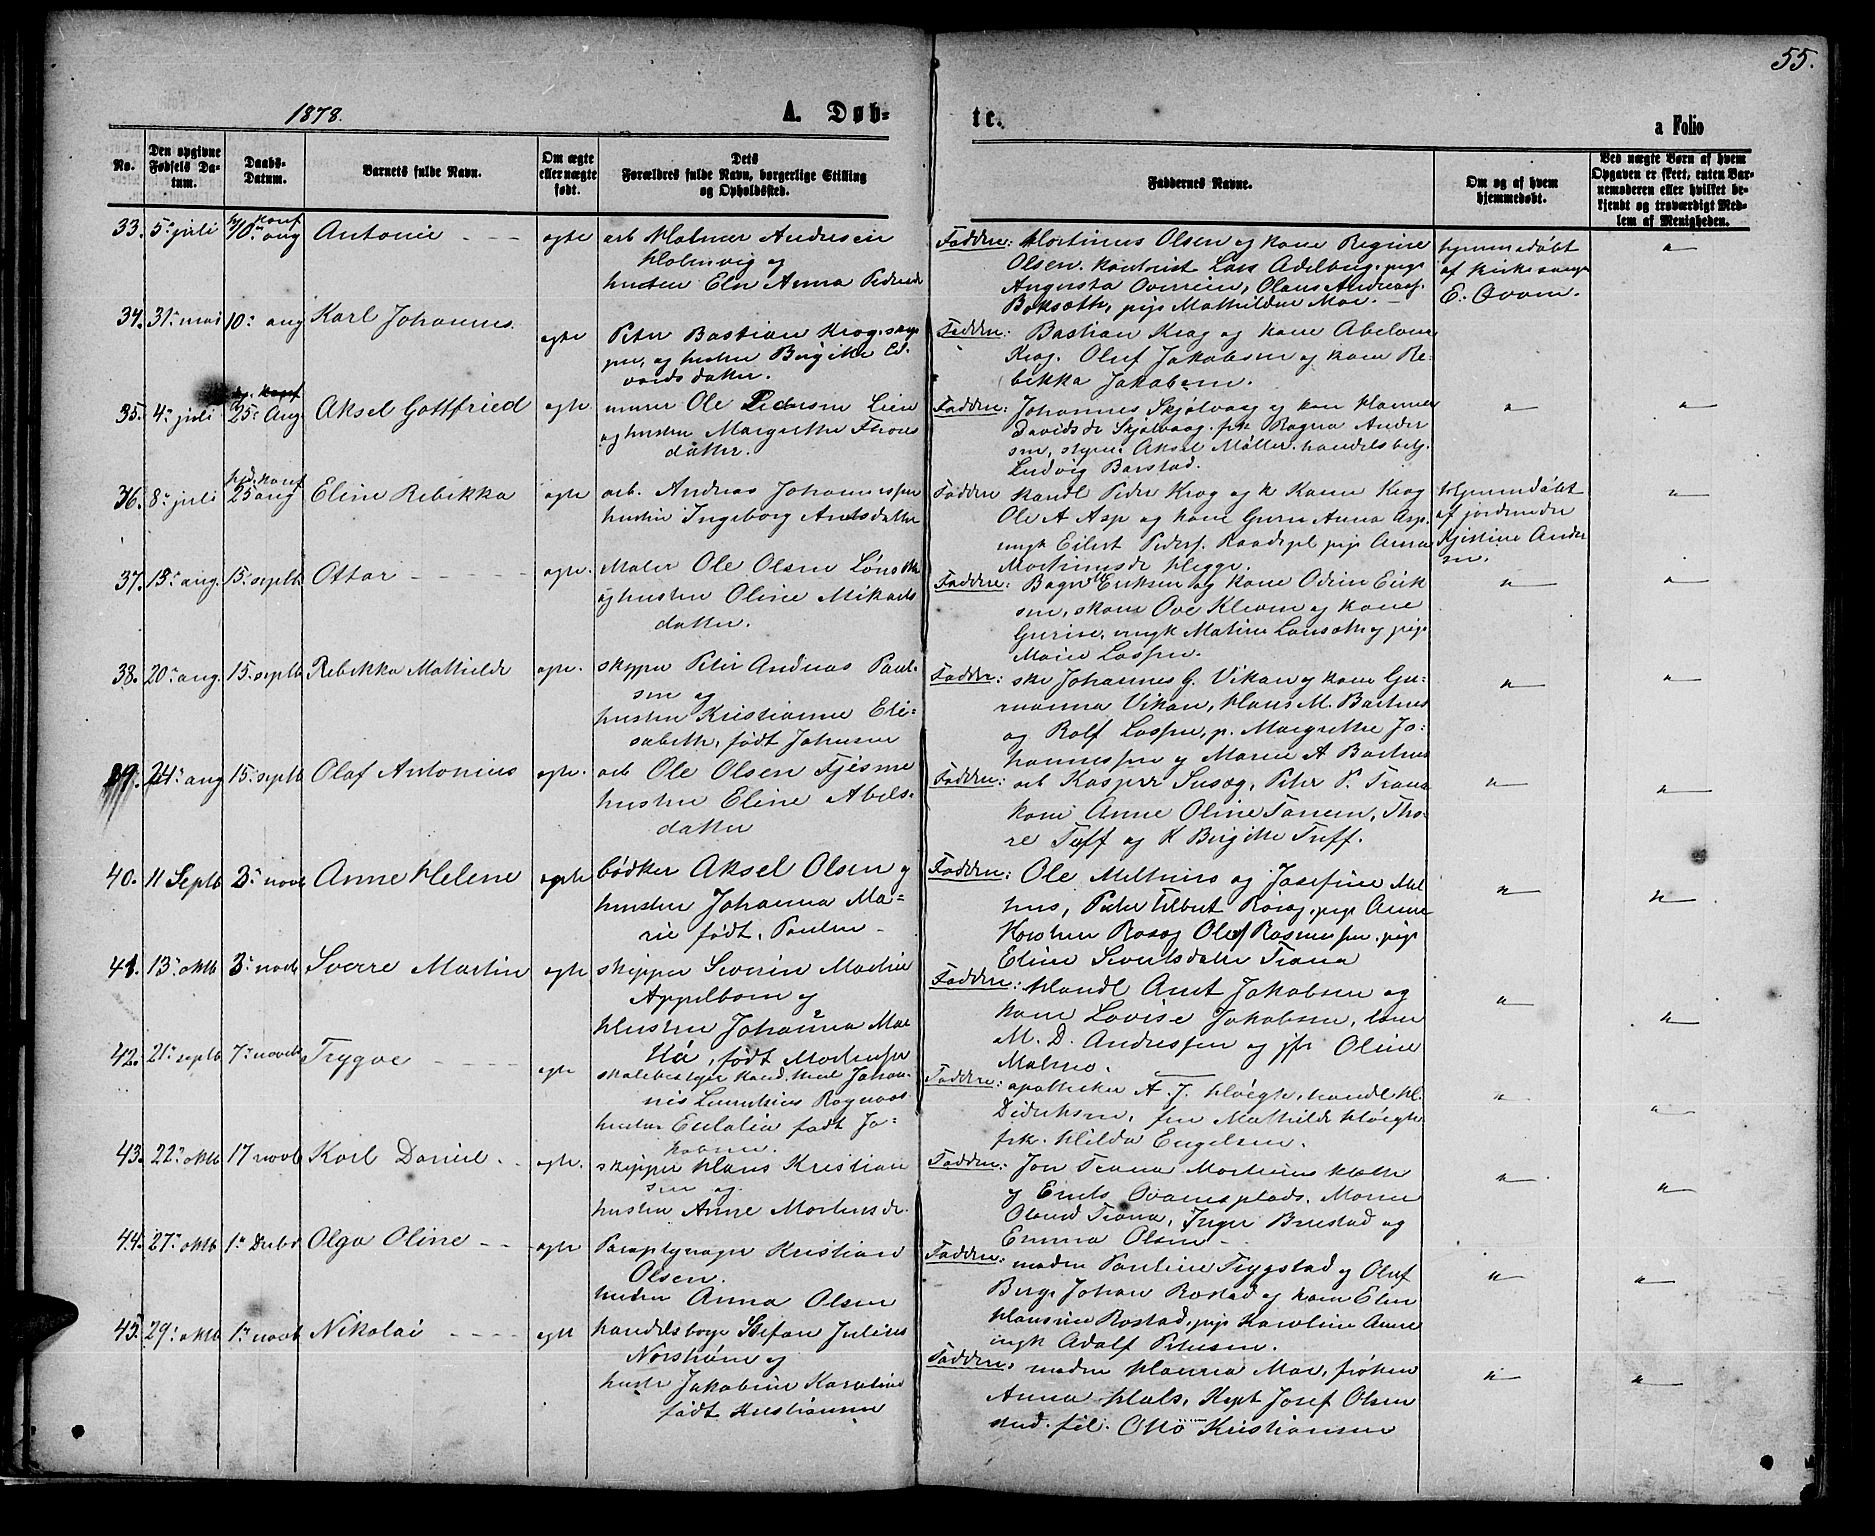 55.
1878.
A. Døb-
te.
a Folio
No.
Den opgivne Fødsels Da-tum.
Daabs-Datum.
Barnets fulde Navn.
Om ægte eller uægte født.
Dets
Forældres fulde Navn, borgerlige Stilling
og Opholdssted.
Faddernes Navne.
Om og af hvem
hjemmedøbt.
Ved uægte Børn af hvem
Opgaven er skeet, enten Bar-
nemoderen eller hvilket be-
kjendt og troværdigt Med-
lem af Menigheden.
33. 5te juli 10de aug Antonie - - - egte arb Halmer Andresen
Holmvig og
hustru Elen Anna
Faddere: Mortinus Olsen og kone Regine
Olsen. kontorist Lars Adelberg. pige
Augusta Overrein, Olaus
pige Mathilde Moe.
hjemmedøbt
af kirkesanger
E. Qvam. "
34. 31te mai 10de aug Karl Johannes. egte Peter Bastian Krog, skip-
per, og hustru Birgitte Ed-
vards datter.
Faddere: Bastian Krog og kone Abelone
Krog. Oluf Jakobsen og kone Re-
bekka Jakobsen.
35. 4de juli 25de Aug Aksel Gottfried egte murer Ole Pedersen Lien
og hustru Margrethe
datter.
Faddere: Johannes Skjølvaag og kone Hanna
Davidsdr Skjølvaag. frk Ragna Ander
sen, styrm. Aksel Møller. handelsbetj.
Ludvig Barstad. " "
36. 8de juli 25 aug Eline Rebekka egte arb. Andreas Johannessen
hustru Ingeborg Arntsdatter
Faddere Handl Peder Krog og k Karen Krog
Ole A Asp og kone Guru Anna Asp.
ungk Eilert Peders. pige Anna
Mortinusdr Hegge.
Hjemmedøbt
af jordemoder
Kjerstine Ander
sen. "
37. 13de aug. 15 septb. Ottar - - - - egte. Maler Ole Olsen
og hustru Oline Mikaels
datter.
Faddere: Eriksen og kone Odine Erik
sen, skom Ove Kleven og kone
Gurine, ungk Matin og pige
Marie Lassen. " "
38. 20de aug. 15. septb Rebekka Mathilde egte. skipper Peter Andreas Paul-
sen og
hustru Kristianna Eli-
sabeth, født Johnsen
Faddere: Johannes G. Vikan og kone Gu-
ruanna Vikan, Hans M. Bartnes
og Rolf Lassen, p. Margrethe Jo-
hannessen og Maren A Bartnes " "
39. 24de aug 15de septb Olaf Antonius egte. arb Ole Olsen Fjesme
hustru Eline Abels-
datter
Faddere: arb Kasper Susæg, Peter P. Trana
kone Anne Oline Tanem, Tho-
re Tuff og k Birgitte Tuff. " "
40. 11 Septb 3de novb Anne Helene egte bødker Aksel Olsen og
hustru Johanna Ma-
rie født. Paulsen
Faddere: Ole Melhus og Josefine Mel
hus, Peter Elbert Rosæg, pige Anne
Rosæg Oluf Rasmussen. pige
Eline Sivertsdatter Trana " "
41. 13de oktb 3de novb Sverre Martin egte skipper Severin Martin
Appelbom og
Hustru Johanna
født Mortensen
Faddere: Handl Arnt Jakobsen og
kone Lovise Jakobsen,
M. D. Andressen og jfr Oline
Malmo. " "
42. 21de septb 7de novb Trygve - - - - egte skolebestyrer Johan-
nes Laurentius Ragnvas
hustru Eulalia født Ja-
kobsen.
Faddere: apotheker A. J. Høeg, handl H.
Didriksen, fru Mathilde Høegh
frk. Hilda Engelsen. " "
43. 22de oktb 17 novb Karl Daniel. - - egte. skipper Hans Kristian
sen og
hustru Anne Mortensdr.
Faddere: Jon Trana Mortinus
og Ernts Qvamsplads. Maren
Trana, Inger Buestad og
Emma Olsen - " "
44. 27de oktb 1ste Decbr Olga Oline - - - egte Paraplymager Kristian
Olsen.
hustru Anna Olsen
Faddere: maden Pauline Trygstad og Oluf
Berg. Johan Rostad og kone Elen
Hansine Rostad, pige Karoline
ungk Adolf Petersen. " "
45. 29de oktb 1ste novb Nikolai - - - - egte handelsborger Stefan Julius
Norstrøm og
hustr Jakobine Karoline
født Kristiansen
Faddere: maden Moe, frøken
Anna Hals, Kapt Josef Olsen
stud. fil. Otto Kristiansen " "